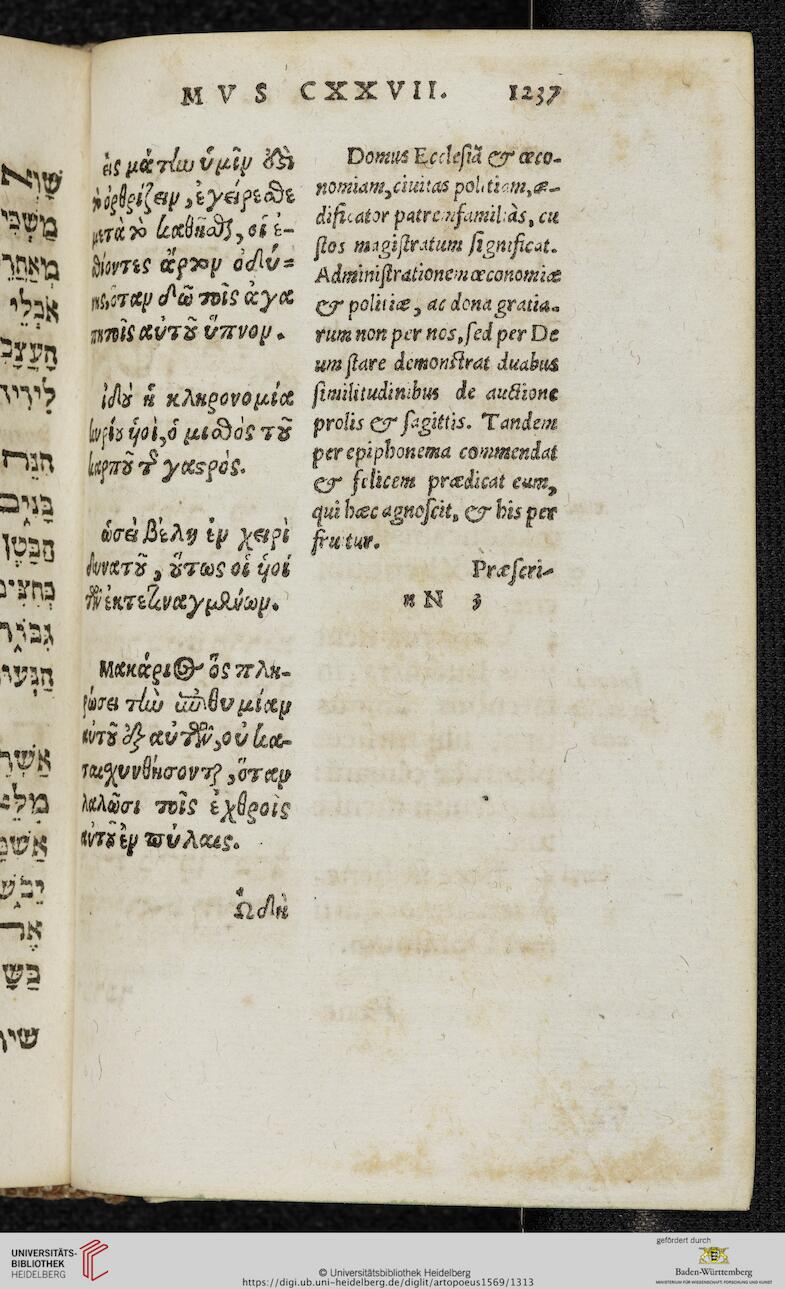 MVS CXXVII. 1237
εἰς μάτην ὑμῖν ἐστὶ
τὸ ὀρθρίζειν, ἐγείρεσθε
μετὰ τὸ καθῆσθαι, οἱ ἐ-
σθίοντες ἄρτον ὀδύ=
νης, ὅταν δῶ τοῖς ἀγα
πητοῖς αὐτοῦ ὕπνον.
ἰδοὺ ἡ κληρονομία
κυρίου ὑοὶ, ὁ μισθὸς τοῦ
καρποῦ τῆς γαστρός.
ὡσεὶ βέλη ἐν χειρὶ
δυνατοῦ, οὕτως οἱ ὑοὶ
τῶν ἐκτετιναγμένων.
Μακάριος ὃς πλη-
ρώσει τὴν ἐπιθυμίαν
αὐτοῦ ἐξ αὐτῶν, οὐ κα-
ταισχυνθήσονται, ὅταν
λαλῶσι τοῖς ἐχθροῖς
αὐτοῦ ἐν πύλαις.
Ὠδὴ
Domus Ecclesiā & œco-
nomiam, ciuitas politiam, æ-
dificator patresfamiliâs, cu
stos magistratum significat.
Administrationem œconomiæ
& politiæ, ac dona gratia-
rum non per nos, sed per De
um stare demonstrat duabus
similitudinibus de auctione
prolis & sagittis. Tandem
per epiphonema commendat
& felicem prædicat eum,
qui hæc agnoscit, & his per
fruitur.
Præscri-
n N 3
שָׁוְא
אֹכְלֵי
בָּנִים
הַבָּטֶן
אַשְׁרֵ
שִׁיר
UNIVERSITÄTS-
BIBLIOTHEK
HEIDELBERG
© Universitätsbibliothek Heidelberg
https://digi.ub.uni-heidelberg.de/diglit/artopoeus1569/1313
gefördert durch
Baden-Württemberg
MINISTERIUM FÜR WISSENSCHAFT, FORSCHUNG UND KUNST